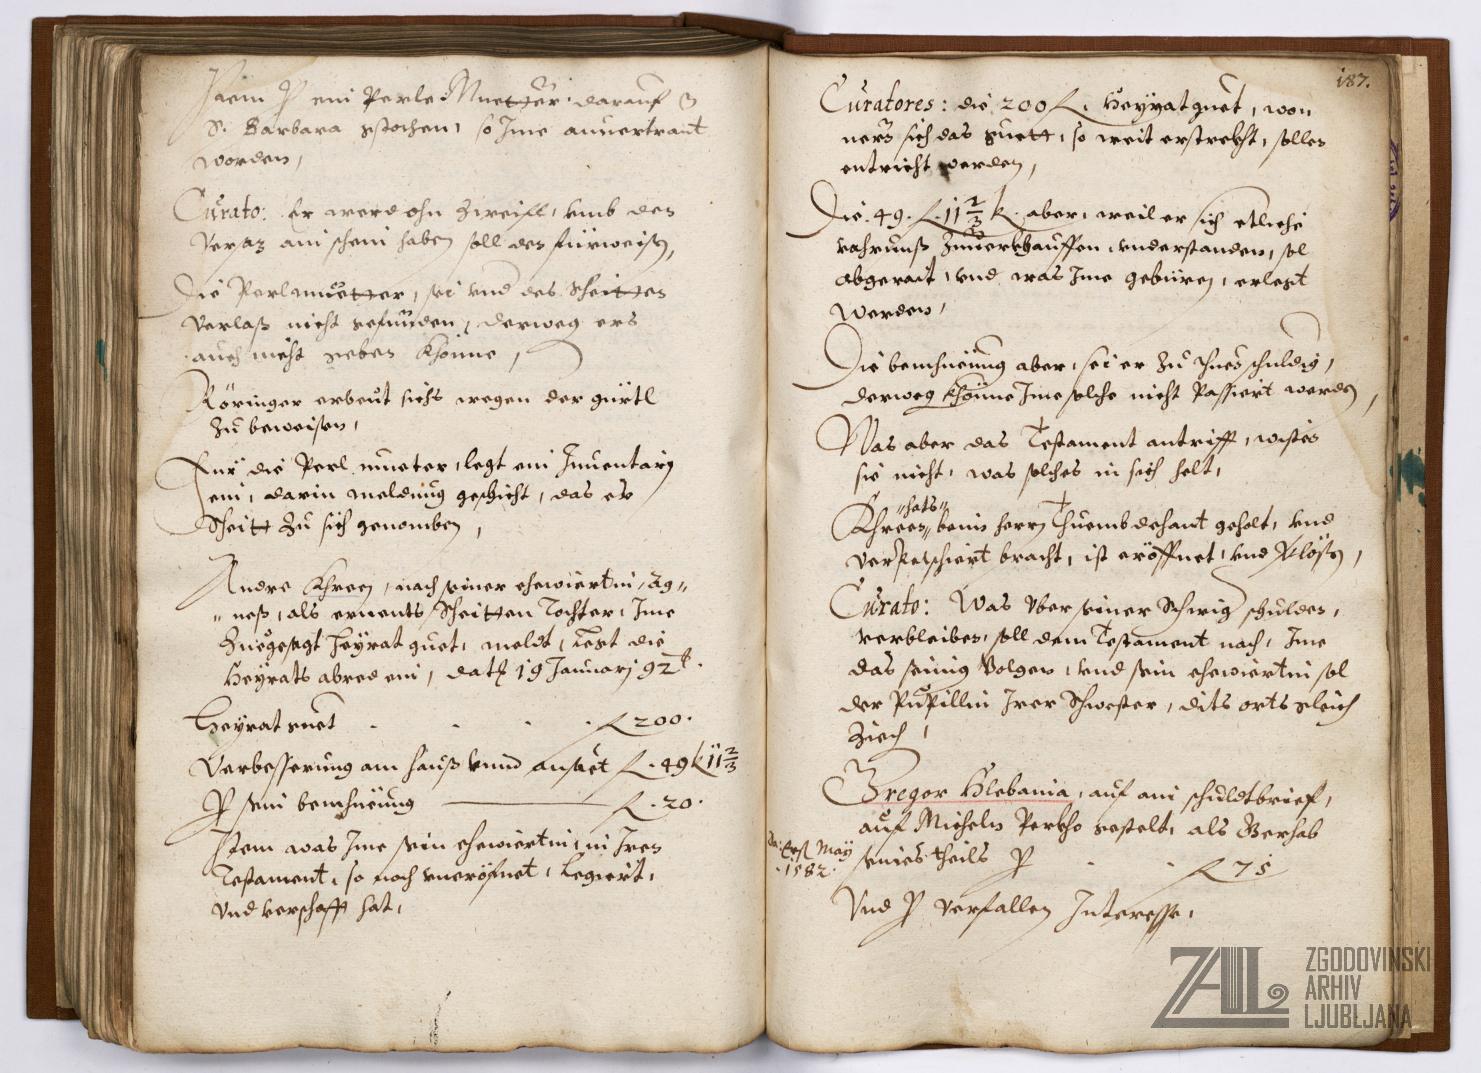 Item p eni Perle Muetter darauf
S. Barbara gstochen, so Ime anuertraut
worden,
Curato: Er werd ohn Zweifl, vmb den
versaz ain schein haben, soll den fürweisen,
Die Perlmuetter, sei vnd des Scheitten
verlaß nicht gefunden, derweg ers
auch nicht geben khönne,
Röringer erbeut sichs wegen der gürtl
zu beweisen,
Für die Perl mueter, legt ein Inuentarj
ein, darin meldung geschicht, das er
Scheitt zu sich genomben,
Andre Khreen, nach seiner ehewiertin, Ag„
„neß, als ernents Scheitten Tochter, Ime
Zuegesagt heyrat guet, meldt, legt die
Heyrats abred ein, dath 19 Januarj 92t.
Heyrat guet . . . . f 200.
Verbesserung am hauß vnnd angeet f. 49 k 11 2/3
p sein bemhueung f. 20.
Item was Ime sein ehewiertin, in Iren
Testament, so noch vneröfnet, Legiert,
vnd verschafft hat,
187.
Curatores: die 200 f. Heyrat guet, wou
nerr sich das guett, so weit erstrekht, sollen
entricht werden,
Die 49. f. 11 2/3 k. aber, weil er sich etliche
vahrnuß zuuerkhauffen vnderstanden, sol
abgerait, vnd was Ime gebüren, erlegt
werden,
Die bemhueung aber, sei er zu thuen schuldig,
derweg khönne Ime solche nicht Passiert werden,
Was aber das Testament antrifft, wisten
sie nicht, was solches in sich helt,
„hats„
Khreen„ beim herrn Thuembdechant geholt, vnd
verpetschiert bracht, ist eröffnet, vnd
Curato: Was vber seiner Schwig schulden,
verbleiben, soll dem Testament nach, Ime
das seinig Volgen, vnd sein ehewiertin sol
der Pupillin Irer Schwester, dits orts gleich
Ziech,
Gregor Khlebania, auf ain schuldtbrief,
auf Micheln Perkho gestelt, als Gerhab
da: Erst May
1582.
seines theils p . . f 75
Vnd p verfallen Interesse,
ZAL ZGODOVINSKI
ARHIV
LJUBLJANA